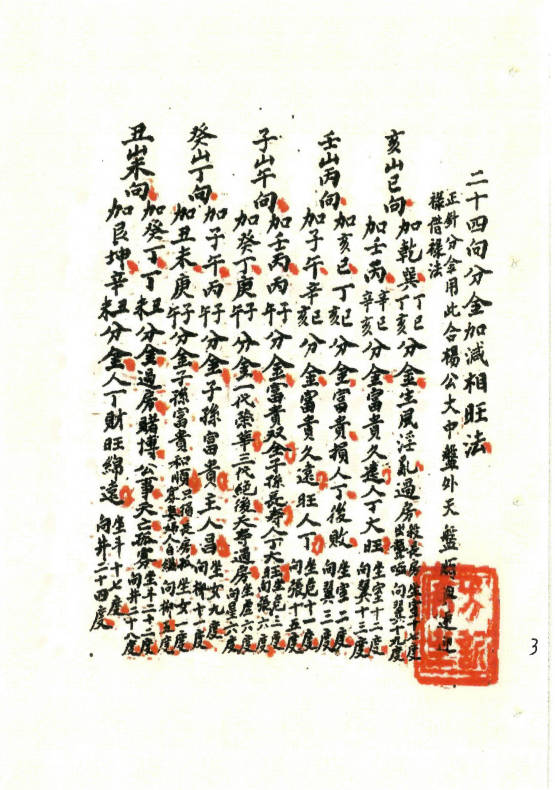 二十四向分金加減相旺法
正針分金用此合楊公大中盤外天盤
祿借祿法
亥山巳向 加乾巽丁巳丁亥分金主風淫亂過房 坐室十七度 向翼九度
加壬丙辛巳辛亥分金富貴久遠人丁大旺 坐室十二度 向翼十三度
壬山丙向 加亥巳丁巳丁亥分金富貴損人丁後敗 坐室二度 向翼二度
加子午辛巳辛亥分金富貴久遠旺人丁 坐危十二度 向張十五度
子山午向 加壬丙丙子丙午分金富貴双全子孫長壽人丁大旺 坐危三度 向張六度
加癸丁庚子庚午分金一代榮華三代絕後夭壽過房 坐虛六度 向星六度
癸山丁向 加子午丙子丙午分金子孫富貴主人昌 坐女九度 向柳十度
加丑未庚子庚午分金子孫富貴和順 坐女二度 向柳五度
丑山未向 加癸丁丁丑丁未分金過房賭博公事夭亡孤寡 坐斗二十二度 向井二十八度
加艮坤辛丑辛未分金人丁財旺綿遠 坐斗十七度 向井二十四度
3